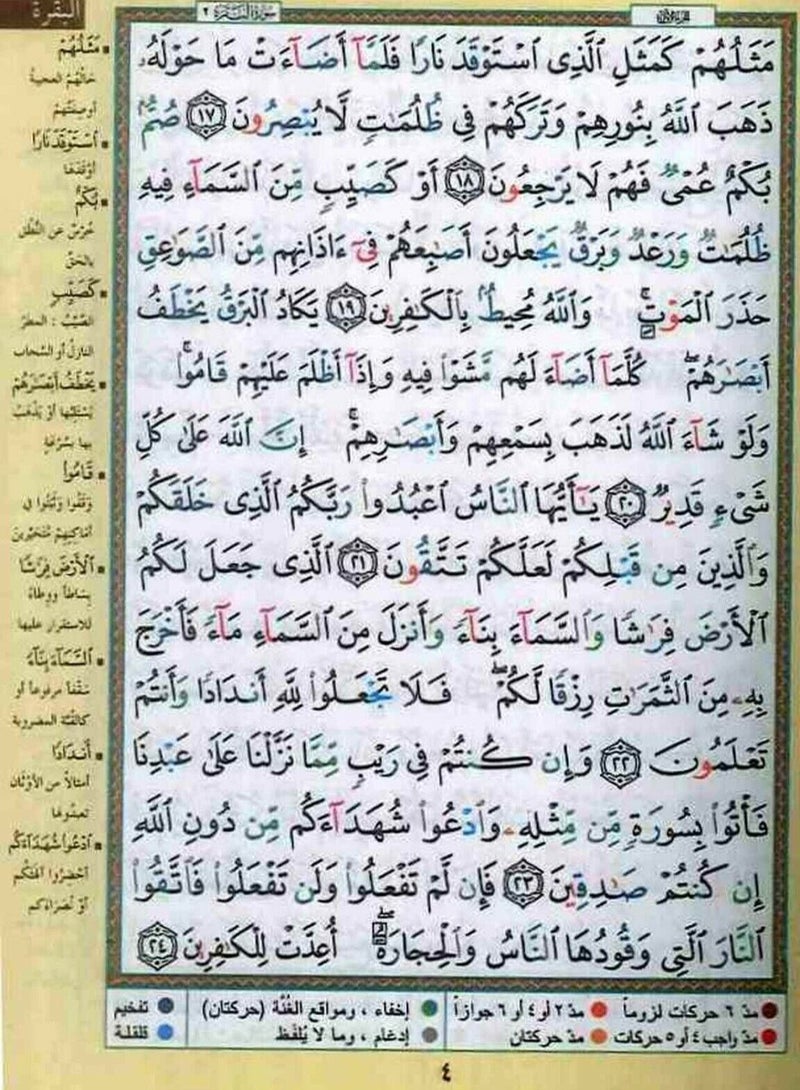 البقرة
سُورَةُ الْبَقَرَةِ ٢
الجزء الأول
مَثَلُهُمْ كَمَثَلِ ٱلَّذِى ٱسْتَوْقَدَ نَارًا فَلَمَّآ أَضَآءَتْ مَا حَوْلَهُۥ
ذَهَبَ ٱللَّهُ بِنُورِهِمْ وَتَرَكَهُمْ فِى ظُلُمَٰتٍ لَّا يُبْصِرُونَ ١٧ صُمٌّۢ
بُكْمٌ عُمْىٌ فَهُمْ لَا يَرْجِعُونَ ١٨ أَوْ كَصَيِّبٍ مِّنَ ٱلسَّمَآءِ فِيهِ
ظُلُمَٰتٌ وَرَعْدٌ وَبَرْقٌ يَجْعَلُونَ أَصَٰبِعَهُمْ فِىٓ ءَاذَانِهِم مِّنَ ٱلصَّوَٰعِقِ
حَذَرَ ٱلْمَوْتِ ۚ وَٱللَّهُ مُحِيطٌۢ بِٱلْكَٰفِرِينَ ١٩ يَكَادُ ٱلْبَرْقُ يَخْطَفُ
أَبْصَٰرَهُمْ ۖ كُلَّمَآ أَضَآءَ لَهُم مَّشَوْا۟ فِيهِ وَإِذَآ أَظْلَمَ عَلَيْهِمْ قَامُوا۟ ۚ
وَلَوْ شَآءَ ٱللَّهُ لَذَهَبَ بِسَمْعِهِمْ وَأَبْصَٰرِهِمْ ۚ إِنَّ ٱللَّهَ عَلَىٰ كُلِّ
شَىْءٍ قَدِيرٌ ٢٠ يَٰٓأَيُّهَا ٱلنَّاسُ ٱعْبُدُوا۟ رَبَّكُمُ ٱلَّذِى خَلَقَكُمْ
وَٱلَّذِينَ مِن قَبْلِكُمْ لَعَلَّكُمْ تَتَّقُونَ ٢١ ٱلَّذِى جَعَلَ لَكُمُ
ٱلْأَرْضَ فِرَٰشًا وَٱلسَّمَآءَ بِنَآءً وَأَنزَلَ مِنَ ٱلسَّمَآءِ مَآءً فَأَخْرَجَ
بِهِۦ مِنَ ٱلثَّمَرَٰتِ رِزْقًا لَّكُمْ ۖ فَلَا تَجْعَلُوا۟ لِلَّهِ أَندَادًا وَأَنتُمْ
تَعْلَمُونَ ٢٢ وَإِن كُنتُمْ فِى رَيْبٍ مِّمَّا نَزَّلْنَا عَلَىٰ عَبْدِنَا
فَأْتُوا۟ بِسُورَةٍ مِّن مِّثْلِهِۦ وَٱدْعُوا۟ شُهَدَآءَكُم مِّن دُونِ ٱللَّهِ
إِن كُنتُمْ صَٰدِقِينَ ٢٣ فَإِن لَّمْ تَفْعَلُوا۟ وَلَن تَفْعَلُوا۟ فَٱتَّقُوا۟
ٱلنَّارَ ٱلَّتِى وَقُودُهَا ٱلنَّاسُ وَٱلْحِجَارَةُ ۖ أُعِدَّتْ لِلْكَٰفِرِينَ ٢٤
• مَثَلُهُمْ
حَالُهُمُ العَجيبةُ
أو صِفَتُهُمْ
• ٱسْتَوْقَدَ نَارًا
أوْقَدَهَا
• بُكْمٌ
خُرْسٌ عن النُّطْقِ
بالحَقِّ
• كَصَيِّبٍ
الصَّيِّبُ : المطرُ
النازلُ أو السَّحابُ
• يَخْطَفُ أَبْصَٰرَهُمْ
يَسْتَلِبُها أوْ يَذْهَبُ
بها بسُرْعَةٍ
• قَامُوا۟
وَقَفُوا وَثَبَتُوا في
أماكِنِهِمْ مُتَحَيِّرينَ
• ٱلْأَرْضَ فِرَٰشًا
بِسَاطاً ووِطاءً
للاستقرار عليها
• ٱلسَّمَآءَ بِنَآءً
سَقْفاً مرفوعاً أو
كالقُبَّة المضروبة
• أَندَادًا
أمثالاً من الأوْثانِ
تعبدُونها
• ٱدْعُوا۟ شُهَدَآءَكُم
أحضِرُوا آلهتَكُم
أوْ نُصَرَاءكم
مدّ ٦ حركات لزوماً مدّ ٢ أو ٤ أو ٦ جوازاً إخفاء ، ومواقع الغُنَّة (حركتان) تفخيم
مدّ واجب ٤ أو ٥ حركات مدّ حركتان إدغام ، وما لا يُلفَظ قلقلة
٤